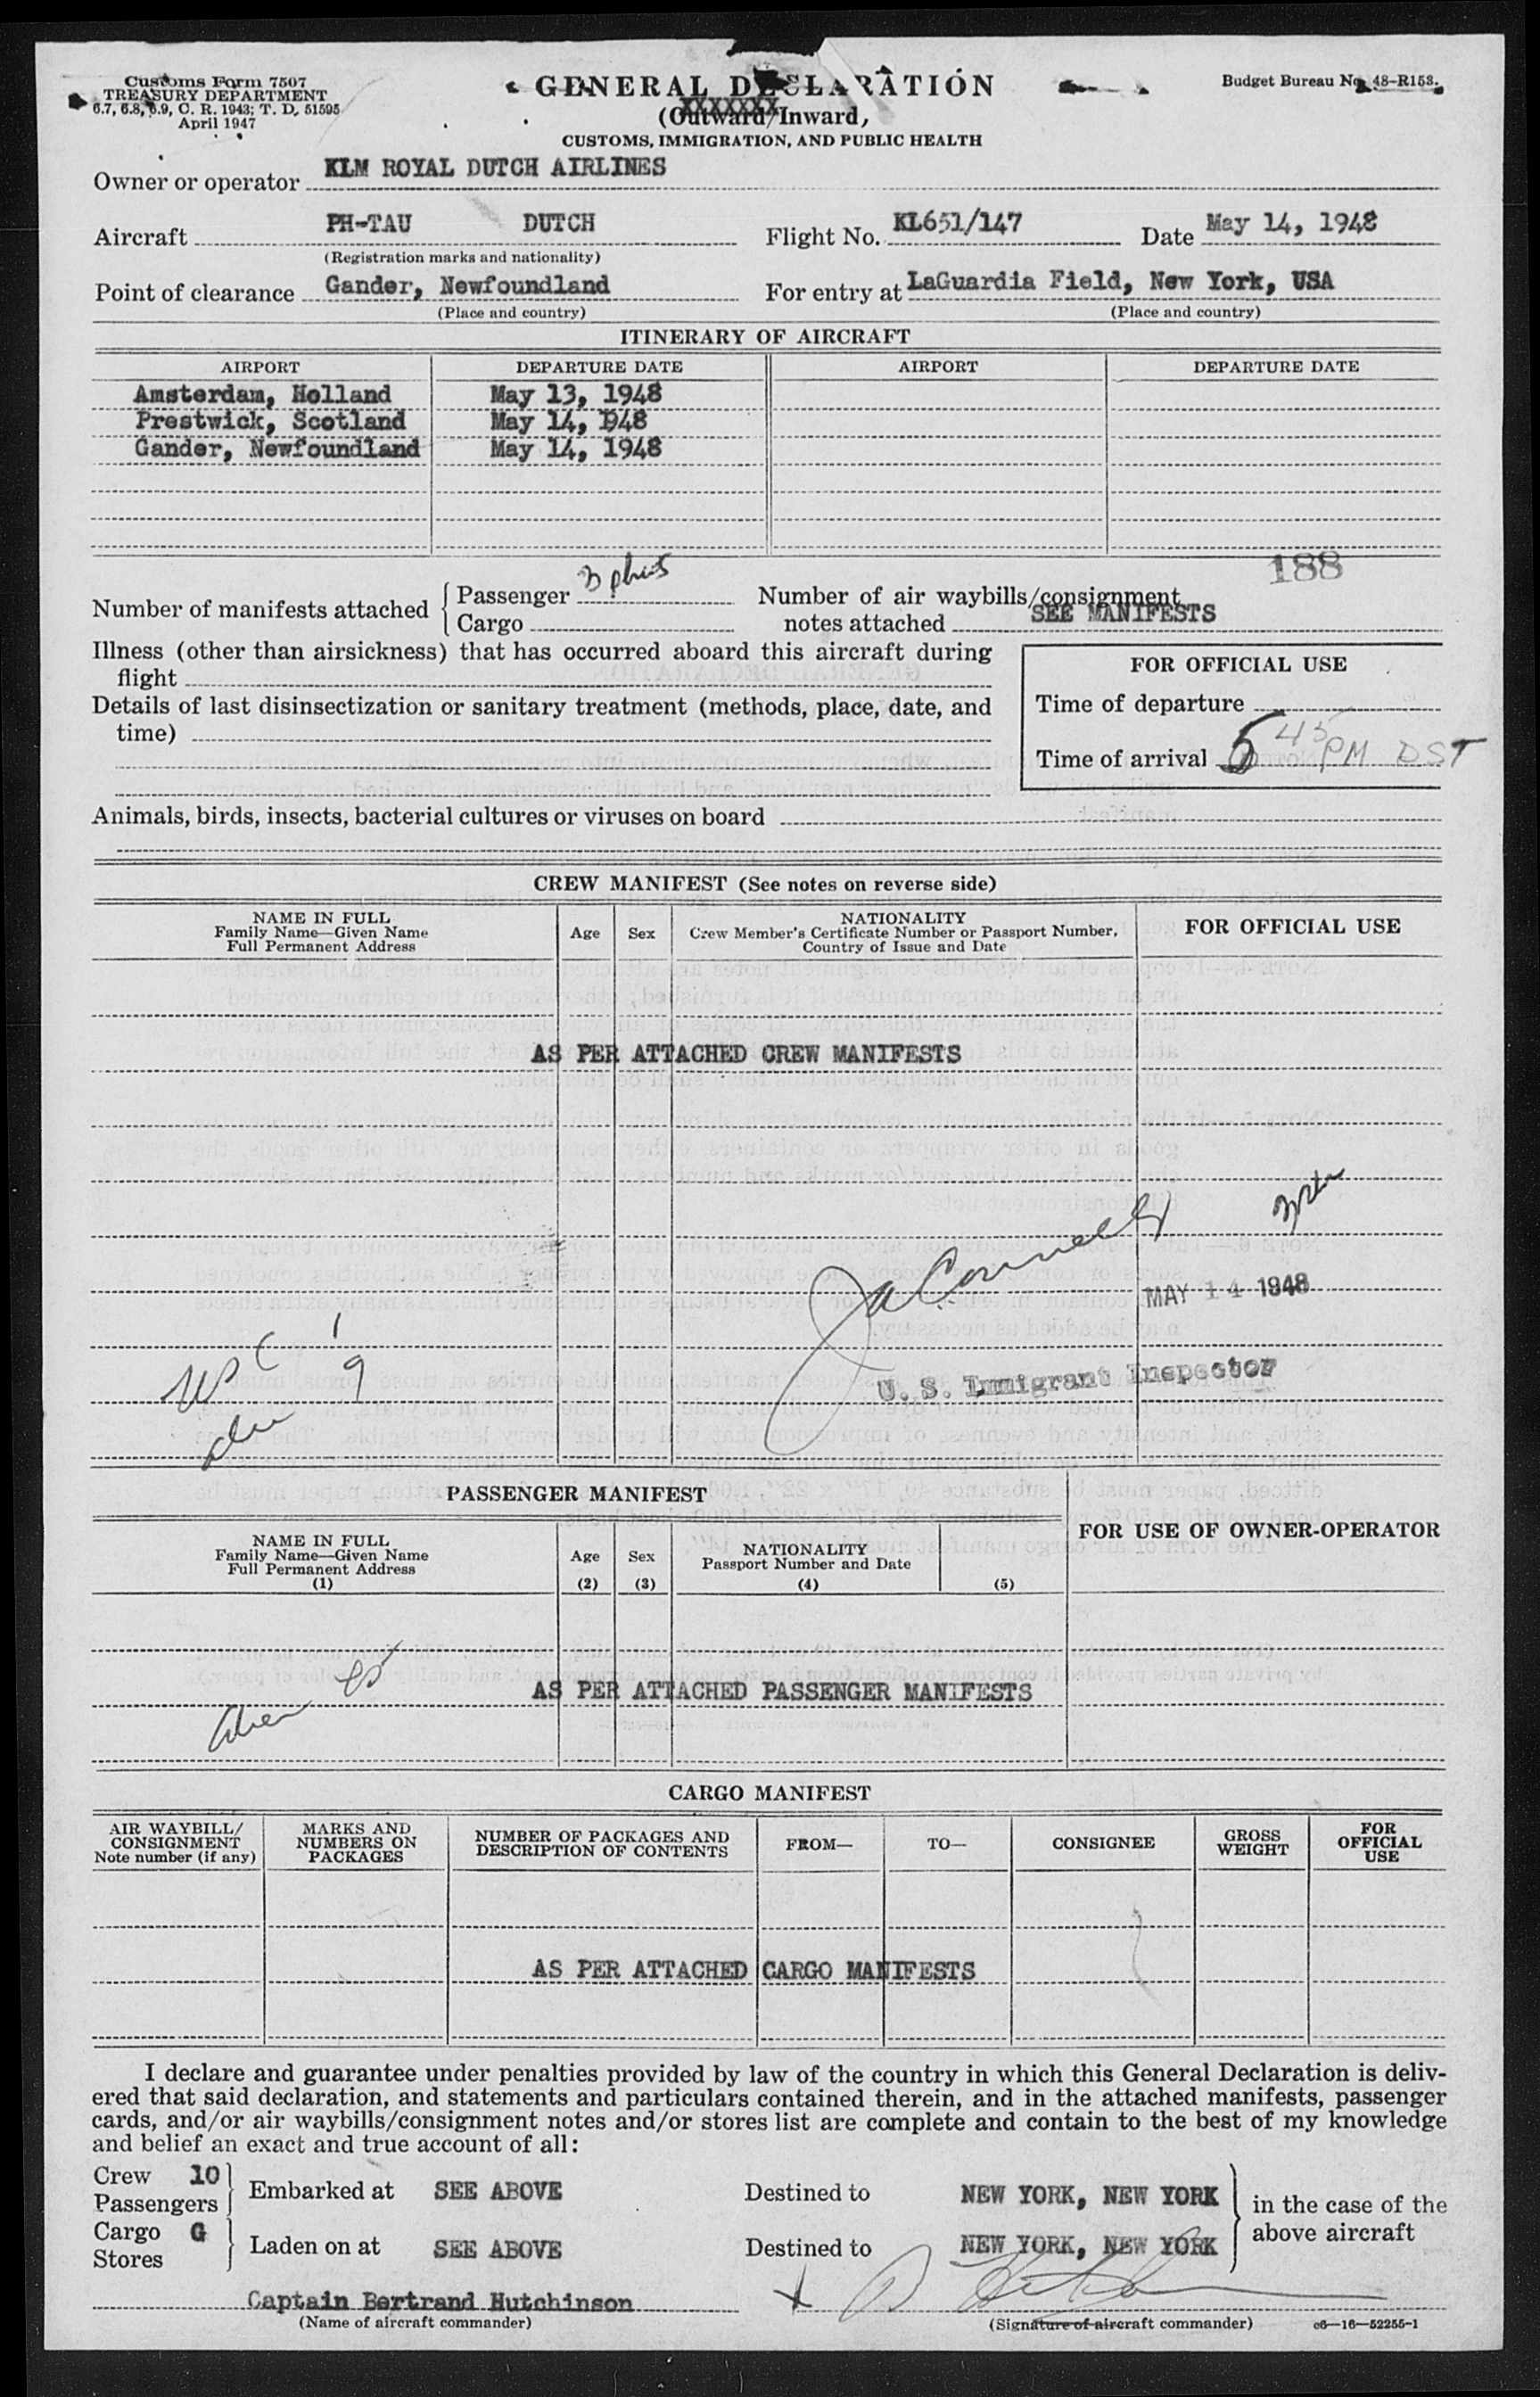 Customs Form 7507
TREASURY DEPARTMENT
6.7, 6.8, 6.9, C. R. 1943; T. D. 51595
April 1947
GENERAL DECLARATION
(Outward/Inward,
XXXXXXX
CUSTOMS, IMMIGRATION, AND PUBLIC HEALTH
Budget Bureau No. 48-R153.
Owner or operator KLM ROYAL DUTCH AIRLINES
Aircraft PH-TAU DUTCH Flight No. KL651/147 Date May 14, 1948
(Registration marks and nationality)
Point of clearance Gander, Newfoundland For entry at LaGuardia Field, New York, USA
(Place and country) (Place and country)
ITINERARY OF AIRCRAFT
AIRPORT DEPARTURE DATE AIRPORT DEPARTURE DATE
Amsterdam, Holland May 13, 1948
Prestwick, Scotland May 14, 1948
Gander, Newfoundland May 14, 1948
188
Number of manifests attached { Passenger 3 Number of air waybills/consignment
Cargo notes attached SEE MANIFESTS
Illness (other than airsickness) that has occurred aboard this aircraft during
flight
Details of last disinsectization or sanitary treatment (methods, place, date, and
time)
FOR OFFICIAL USE
Time of departure
Time of arrival 5 45 PM DST
Animals, birds, insects, bacterial cultures or viruses on board
CREW MANIFEST (See notes on reverse side)
NAME IN FULL
Family Name—Given Name
Full Permanent Address
Age
Sex
NATIONALITY
Crew Member's Certificate Number or Passport Number,
Country of Issue and Date
FOR OFFICIAL USE
AS PER ATTACHED CREW MANIFESTS
MAY 14 1948
USC 1
9
U. S. Immigrant Inspector
PASSENGER MANIFEST
NAME IN FULL
Family Name—Given Name
Full Permanent Address
(1)
Age
(2)
Sex
(3)
NATIONALITY
Passport Number and Date
(4)
(5)
FOR USE OF OWNER-OPERATOR
AS PER ATTACHED PASSENGER MANIFESTS
CARGO MANIFEST
AIR WAYBILL/
CONSIGNMENT
Note number (if any)
MARKS AND
NUMBERS ON
PACKAGES
NUMBER OF PACKAGES AND
DESCRIPTION OF CONTENTS
FROM—
TO—
CONSIGNEE
GROSS
WEIGHT
FOR
OFFICIAL
USE
AS PER ATTACHED CARGO MANIFESTS
I declare and guarantee under penalties provided by law of the country in which this General Declaration is deliv-
ered that said declaration, and statements and particulars contained therein, and in the attached manifests, passenger
cards, and/or air waybills/consignment notes and/or stores list are complete and contain to the best of my knowledge
and belief an exact and true account of all:
Crew 10
Passengers
Embarked at SEE ABOVE Destined to NEW YORK, NEW YORK
Cargo G
Stores
Laden on at SEE ABOVE Destined to NEW YORK, NEW YORK
in the case of the
above aircraft
Captain Bertrand Hutchinson
(Name of aircraft commander)
(Signature of aircraft commander)
c6—16—52255-1